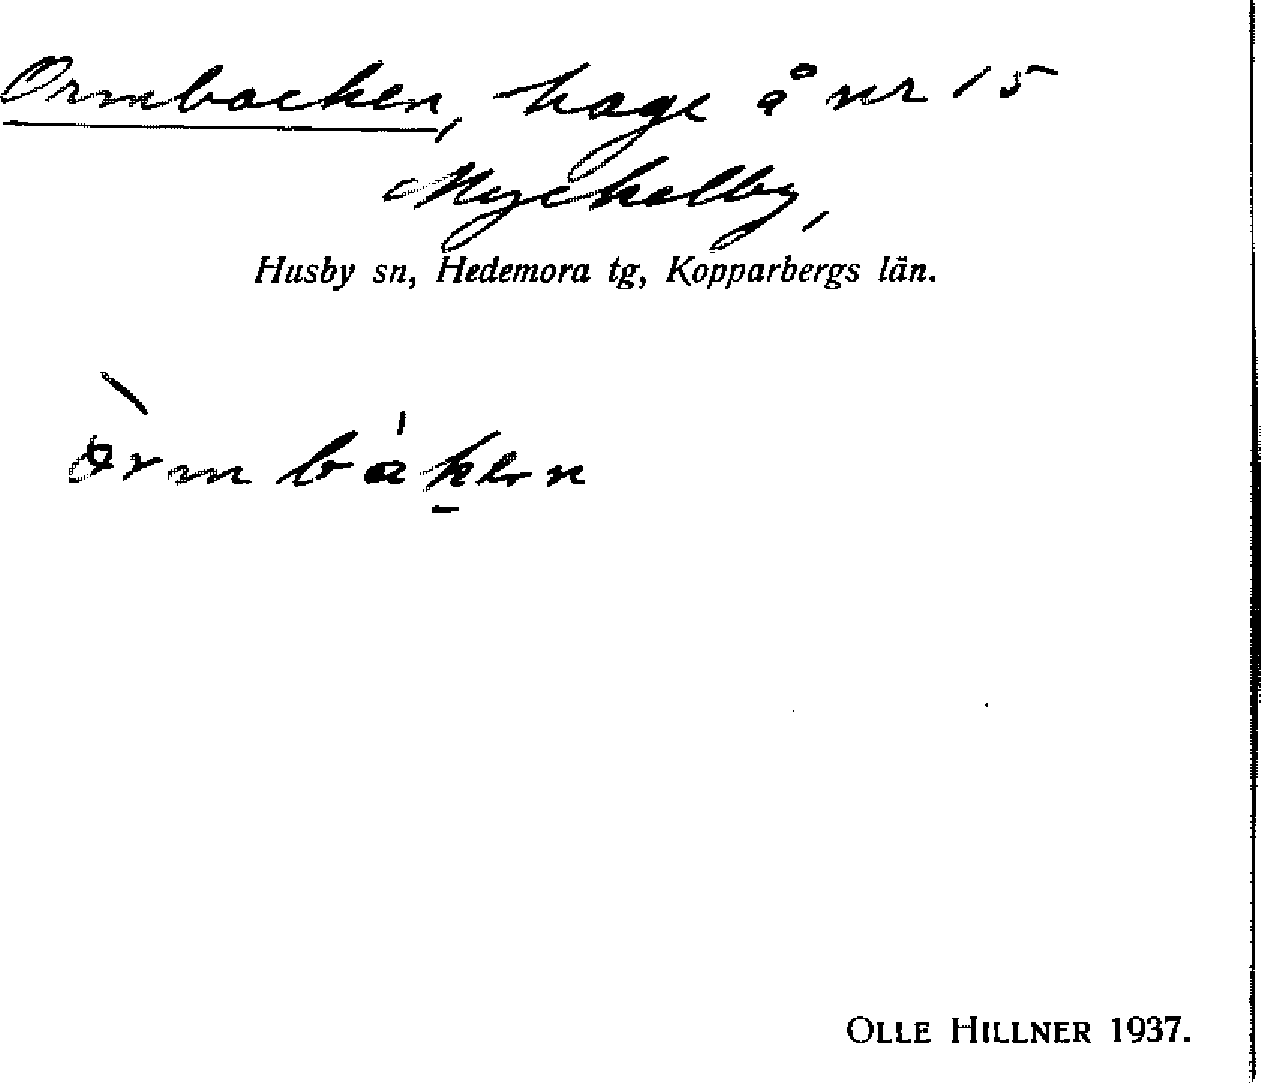 Ormbacken, hage å nr 15
Myckelby,
Husby sn, Hedemora tg, Kopparbergs län.
OLLE HILLNER 1937.